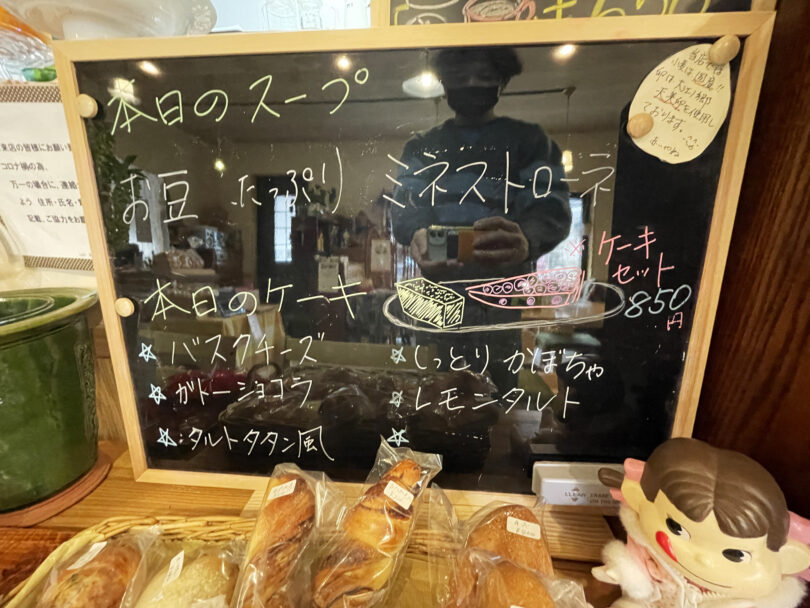 本日のスープ
お豆 たっぷり ミネストローネ
本日のケーキ
※ケーキ
セット
850
円
☆バスクチーズ
☆ガトーショコラ
☆タルトタタン風
☆しっとりかぼちゃ
☆レモンタルト
☆
当店では
小麦は国産!!
卵は大江ノ郷
天美卵を使用し
ております。
来店の皆様にお願い
コロナ禍の為、
万一の場合に、連絡
よう 住所・氏名・
記載、ご協力をお
CLEAN